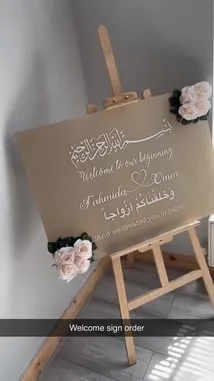 بسم الله الرحمن الرحيم
Welcome to our beginning
Fahmida Omar
وخلقناكم أزواجا
"And we created you in pairs"
Welcome sign order